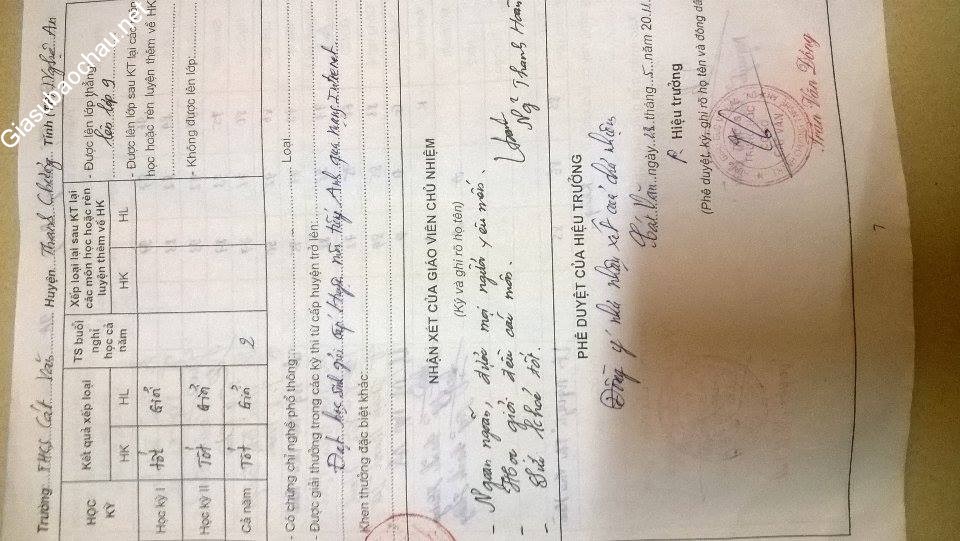 Giasubaochau.net
Trường THCS Cát Văn Huyện Thanh Chương Tỉnh (TP) Nghệ An
HỌC KỲ
Kết quả xếp loại
TS buổi nghỉ học cả năm
Xếp loại lại sau KT lại các môn học hoặc rèn luyện thêm về HK
- Được lên lớp thẳng:
lên lớp 9
- Được lên lớp sau KT lại các
học hoặc rèn luyện thêm về HK
- Không được lên lớp:
HK HL HK HL
Học kỳ I tốt Giỏi
Học kỳ II Tốt Giỏi
Cả năm Tốt Giỏi 2
- Có chứng chỉ nghề phổ thông: Loại
- Được giải thưởng trong các kỳ thi từ cấp huyện trở lên:
Đạt học sinh giỏi cấp Huyện môn tiếng Anh qua mạng Internet
- Khen thưởng đặc biệt khác:
NHẬN XÉT CỦA GIÁO VIÊN CHỦ NHIỆM
(Ký và ghi rõ họ tên)
- Ngoan ngoãn, được mọi người yêu mến.
- Học giỏi đều các môn.
- Sức khoẻ tốt.
Ng² Thanh Hoàn
PHÊ DUYỆT CỦA HIỆU TRƯỞNG
Đồng ý như nhận xét của chủ nhiệm
Cát Văn, ngày 28 tháng 5 năm 20.11
P. Hiệu trưởng
(Phê duyệt, ký, ghi rõ họ tên và đóng dấ
TRUNG HỌC
CÁT VĂN
Trần Văn Đông
7